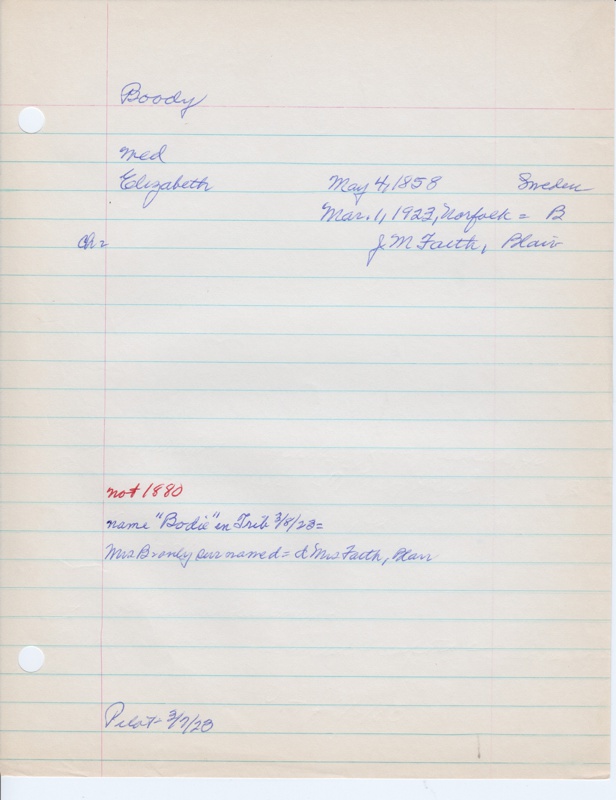 Boody
Med
Elizabeth May 4, 1858 Sweden
Mar. 1, 1923, Norfolk = B
Ch = J M Faith, Blair
not 1880
name "Bodie" in Trib 3/8/23 =
Mrs only sur named = d Mrs Faith, Blair
Pilot - 3/7/23